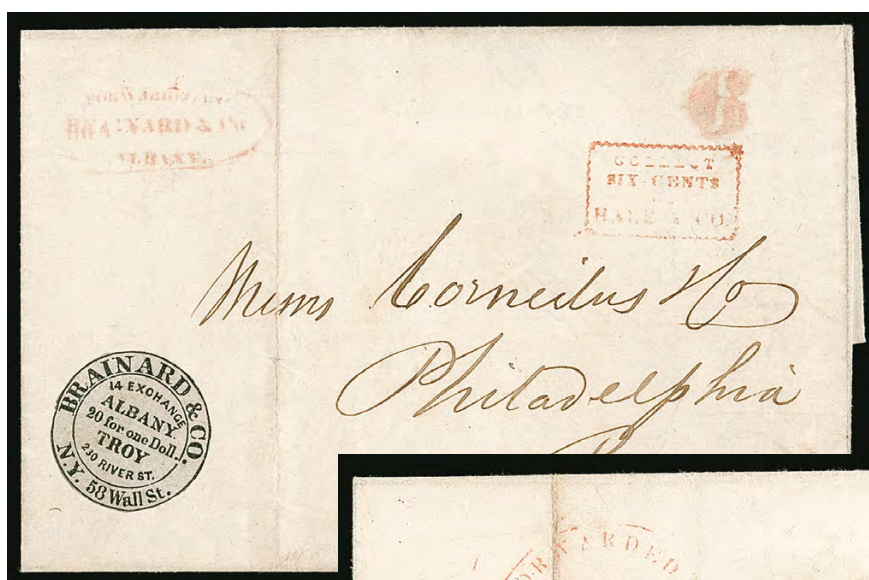 BRAINARD & Co
ALBANY.
6
COLLECT
SIX CENTS
HALE & CO.
Messrs Corneilus & Co
Philadelphia
BRAINARD & CO.
14 EXCHANGE
ALBANY.
20 for one Doll.
TROY
230 RIVER ST.
N.Y. 58 Wall St.
FORWARDED